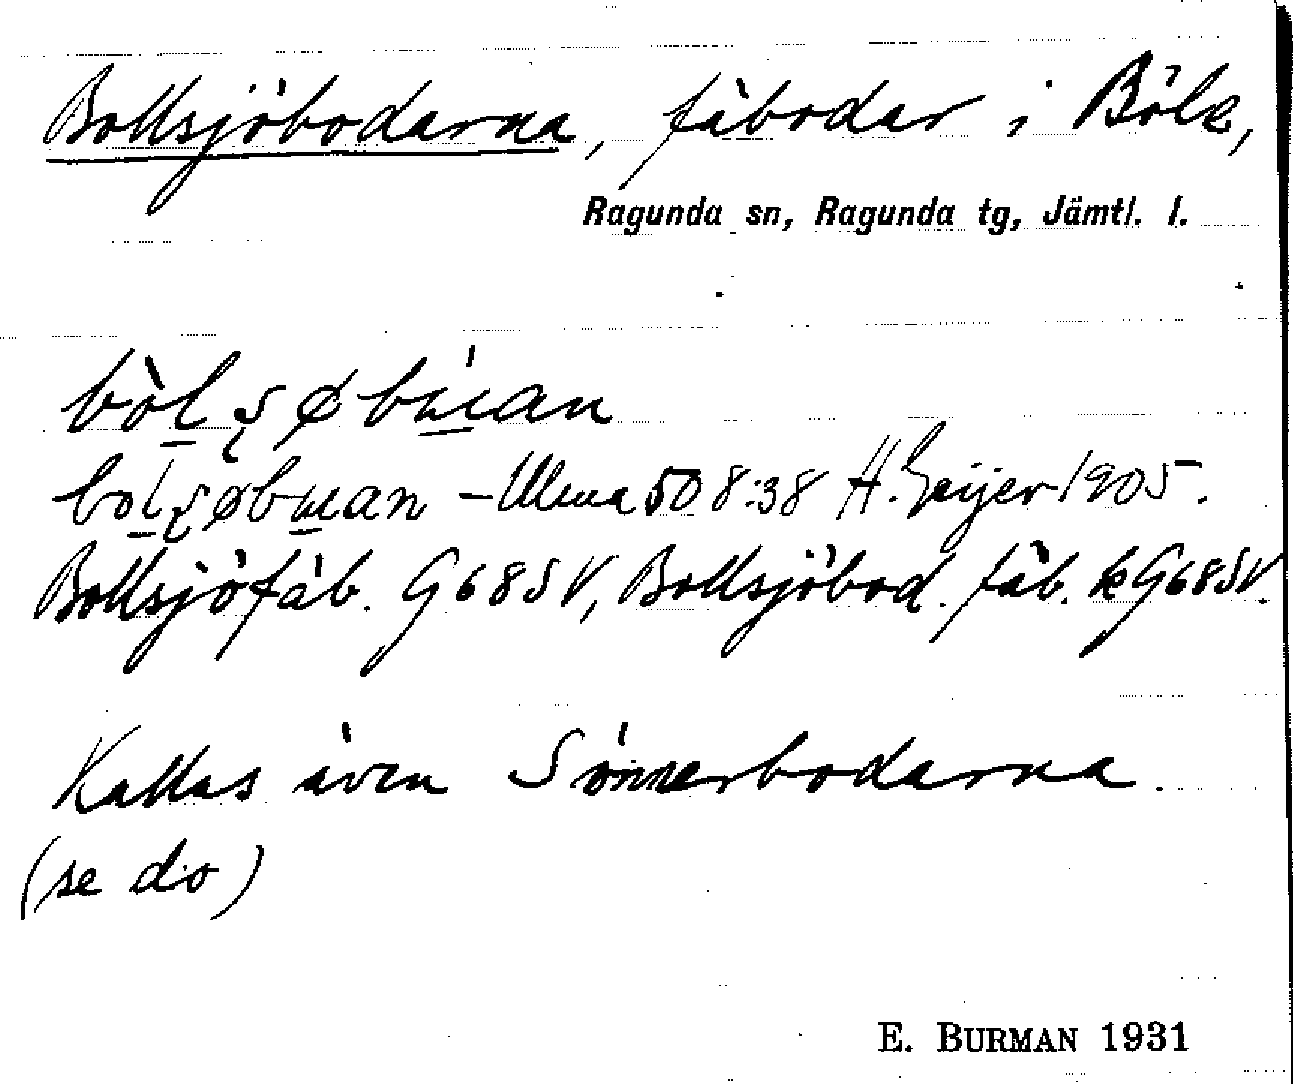 Bollsjöbodarna, fäbodar i Böle,
Ragunda sn, Ragunda tg, Jämtl. l.
bòlʂøbu̇an
bolʂøbuan – Ulma 50 8:38 H. Geijer 1905.
Bollsjöfäb. G68SV, Bollsjöbod. fäb. k G68SV.
Kallas även Sönnerbodarna.
(se d:o)
E. BURMAN 1931